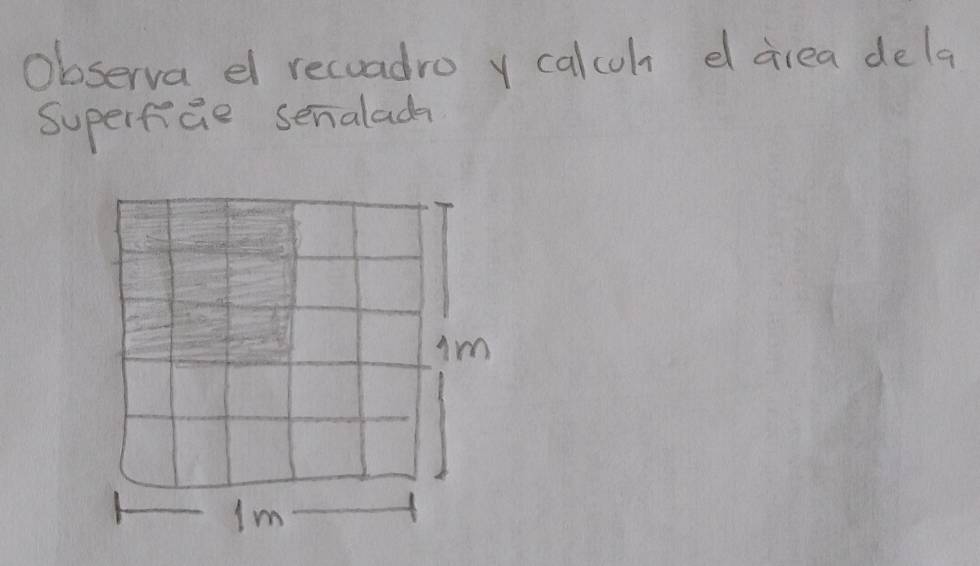 Observa el recuadro y calcula el área de la
Superficie señalada.
1m
1m